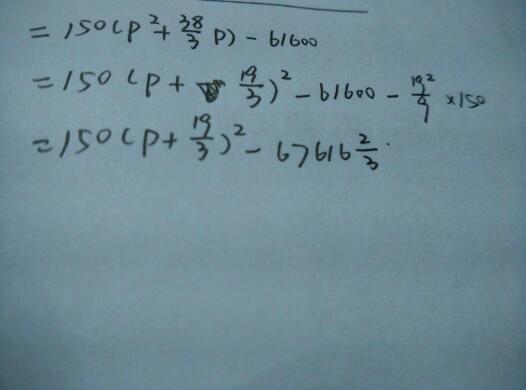 = 150(p² + 38/3 p) - 61600
= 150(p + 19/3)² - 61600 - 19²/9 × 150
= 150(p + 19/3)² - 67616 2/3.